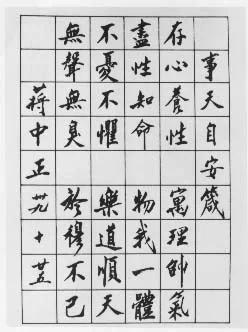 事天自安箴
存心養性寓理帥氣
盡性知命物我一體
不憂不懼樂道順天
無聲無臭於穆不已
蔣中正卅九十廿五